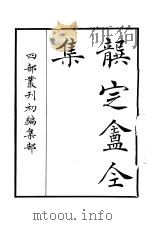 龔定盦全
集
四部叢刊初編集部
mtoou.info(mtoou.info)